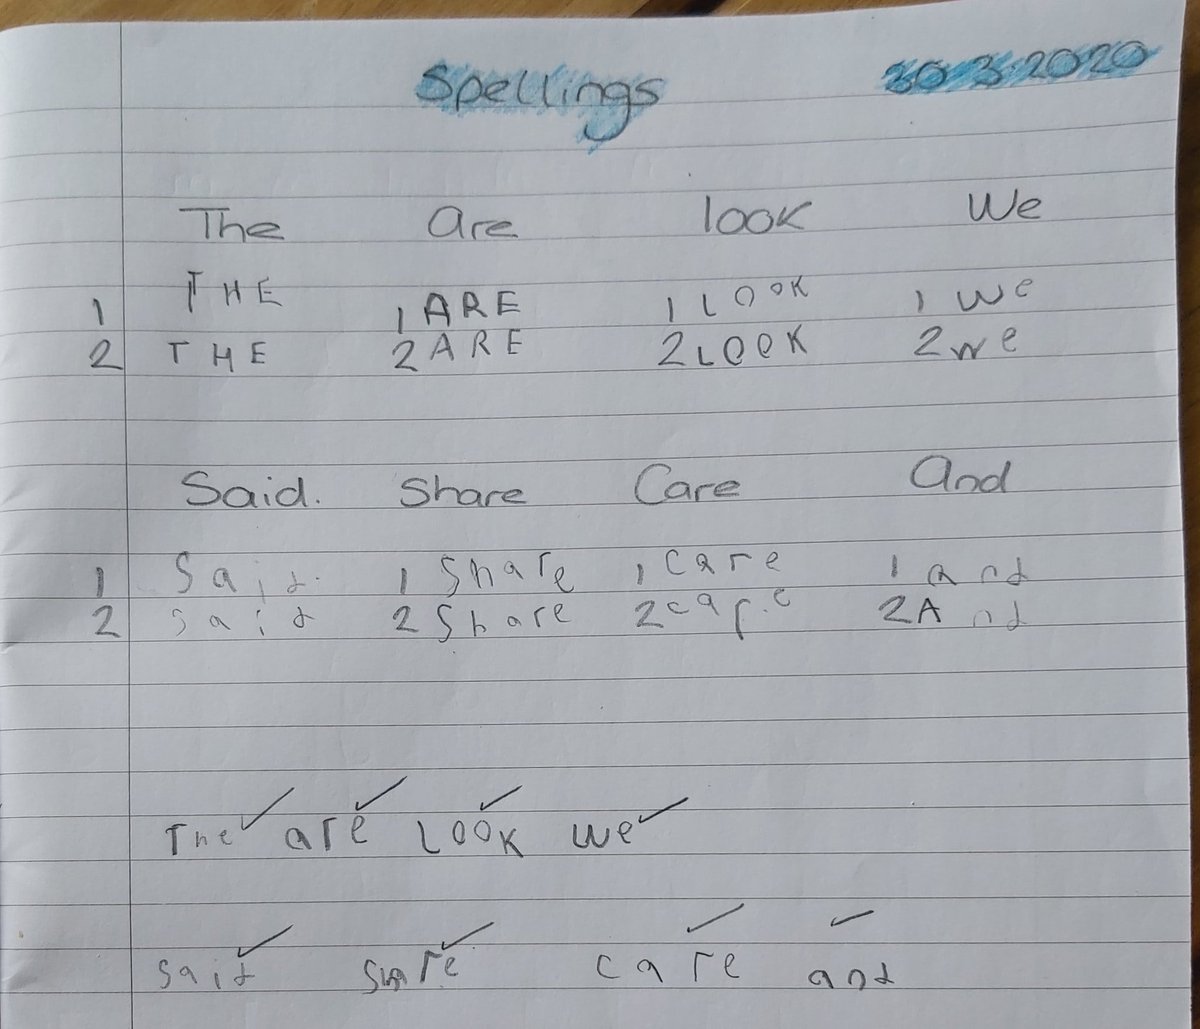 Spellings 30.3.2020
The are look We
1 THE 1 ARE 1 LOOK 1 We
2 THE 2 ARE 2 LOOK 2 we
Said. Share Care And
1 Said. 1 Share 1 care 1 and
2 said 2 Share 2 care 2 And
The are LOOK we
said share care and